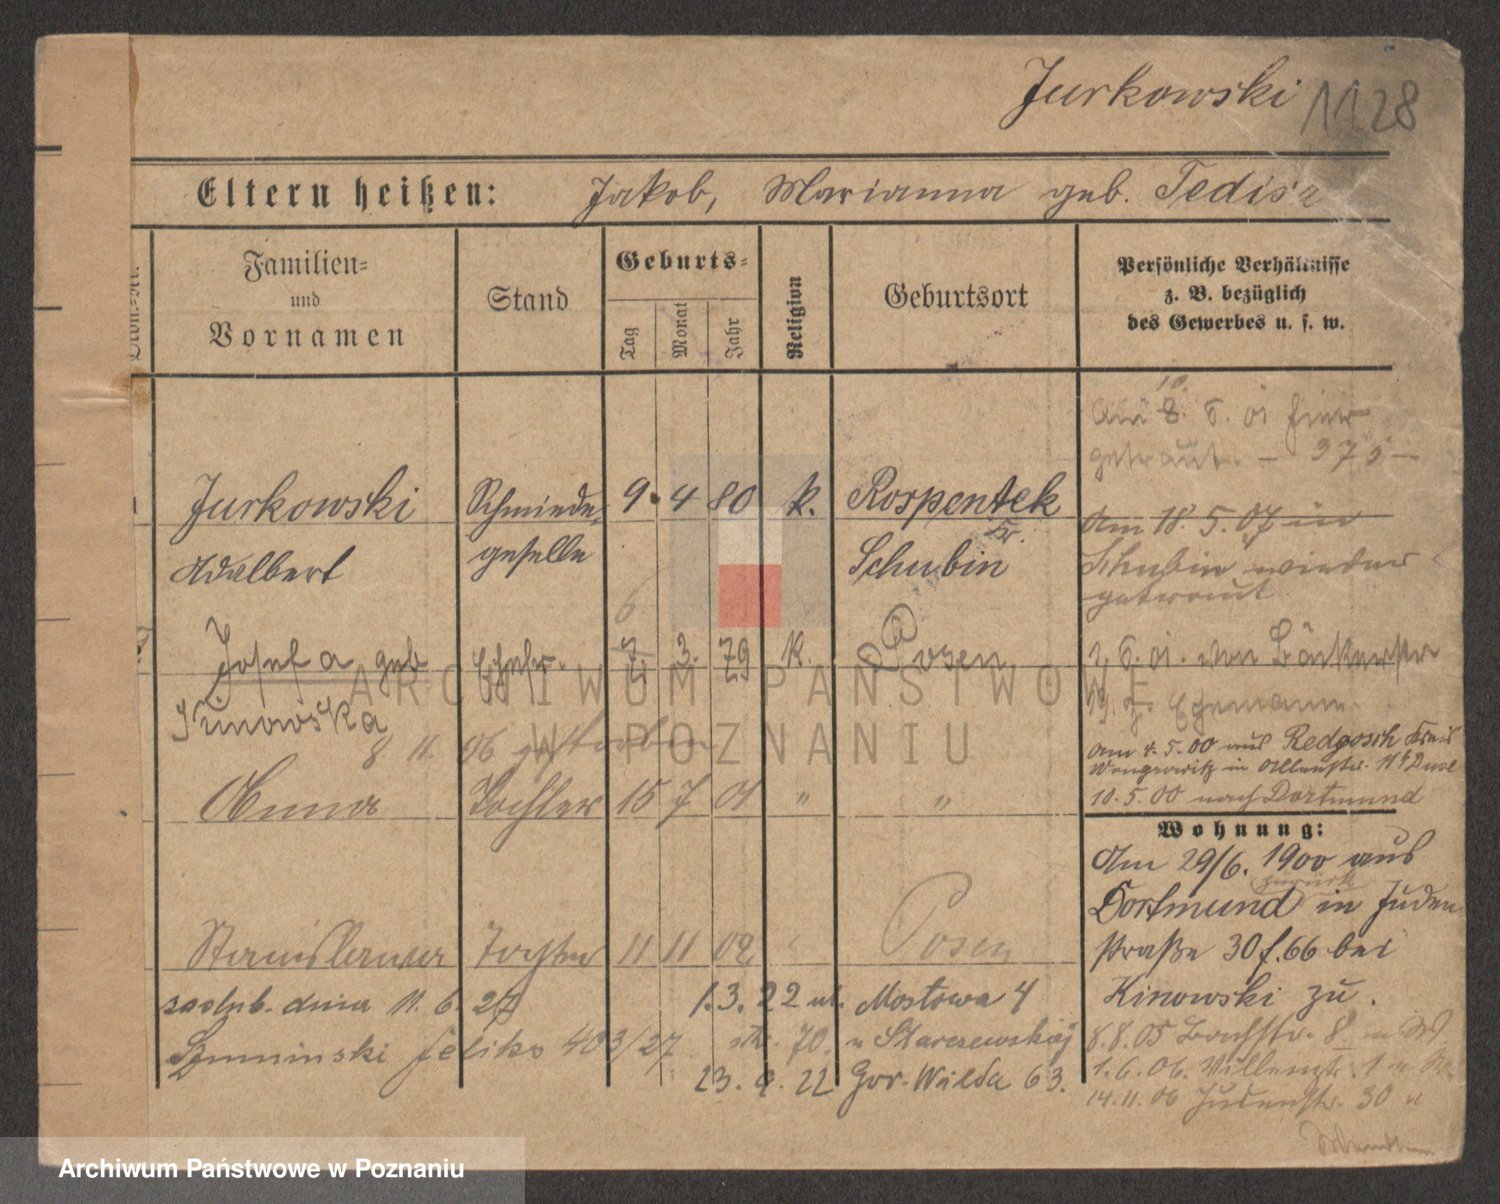 Jurkowski 1128
Eltern heißen: Jakob, Marianna geb. Tedisz
Familien-
und
Vornamen
Stand
Geburts-
Tag
Monat
Jahr
Religion
Geburtsort
Persönliche Verhältnisse
z. B. bezüglich
des Gewerbes u. s. w.
10.
Am 8. 6. 01 hier
getraut. – 375 –
Jurkowski Schmiede- 9. 4 80 k. Rospentek
Kr.
Adalbert geselle Schubin
Am 18. 5. 07 in
Schubin wieder
getraut
6
Josefa geb Ehefr. 7 3. 79 k. Posen
Kinowska
8 11 06 gestorben
2. 6. 01. von Bäckerstr
19. z. Ehemann.
Am 4. 5. 00 aus Redgosch Kreis
Wongrowitz in
10. 5. 00 nach Dortmund
Anna Tochter 15 7 01 " "
Wohnung:
Am 29/6. 1900 aus
zurück
Dortmund in Juden
straße 30 f. 66 bei
Kinowski zu.
Stanislawa Tochter 11 11 02 Posen
zaślub. dnia 11. 6. 27
Szuminski Feliks 403/27
1. 3. 22 ul. Mostowa 4
70. u Starczewskiej
23. 9. 22 Gor. Wilda 63.
8. 8. 05 Bachstr. 8. u W.
1. 6. 06. 1 u W.
14. 11. 06 Judenstr. 30 u
ARCHIWUM PAŃSTWOWE
W POZNANIU
Archiwum Państwowe w Poznaniu